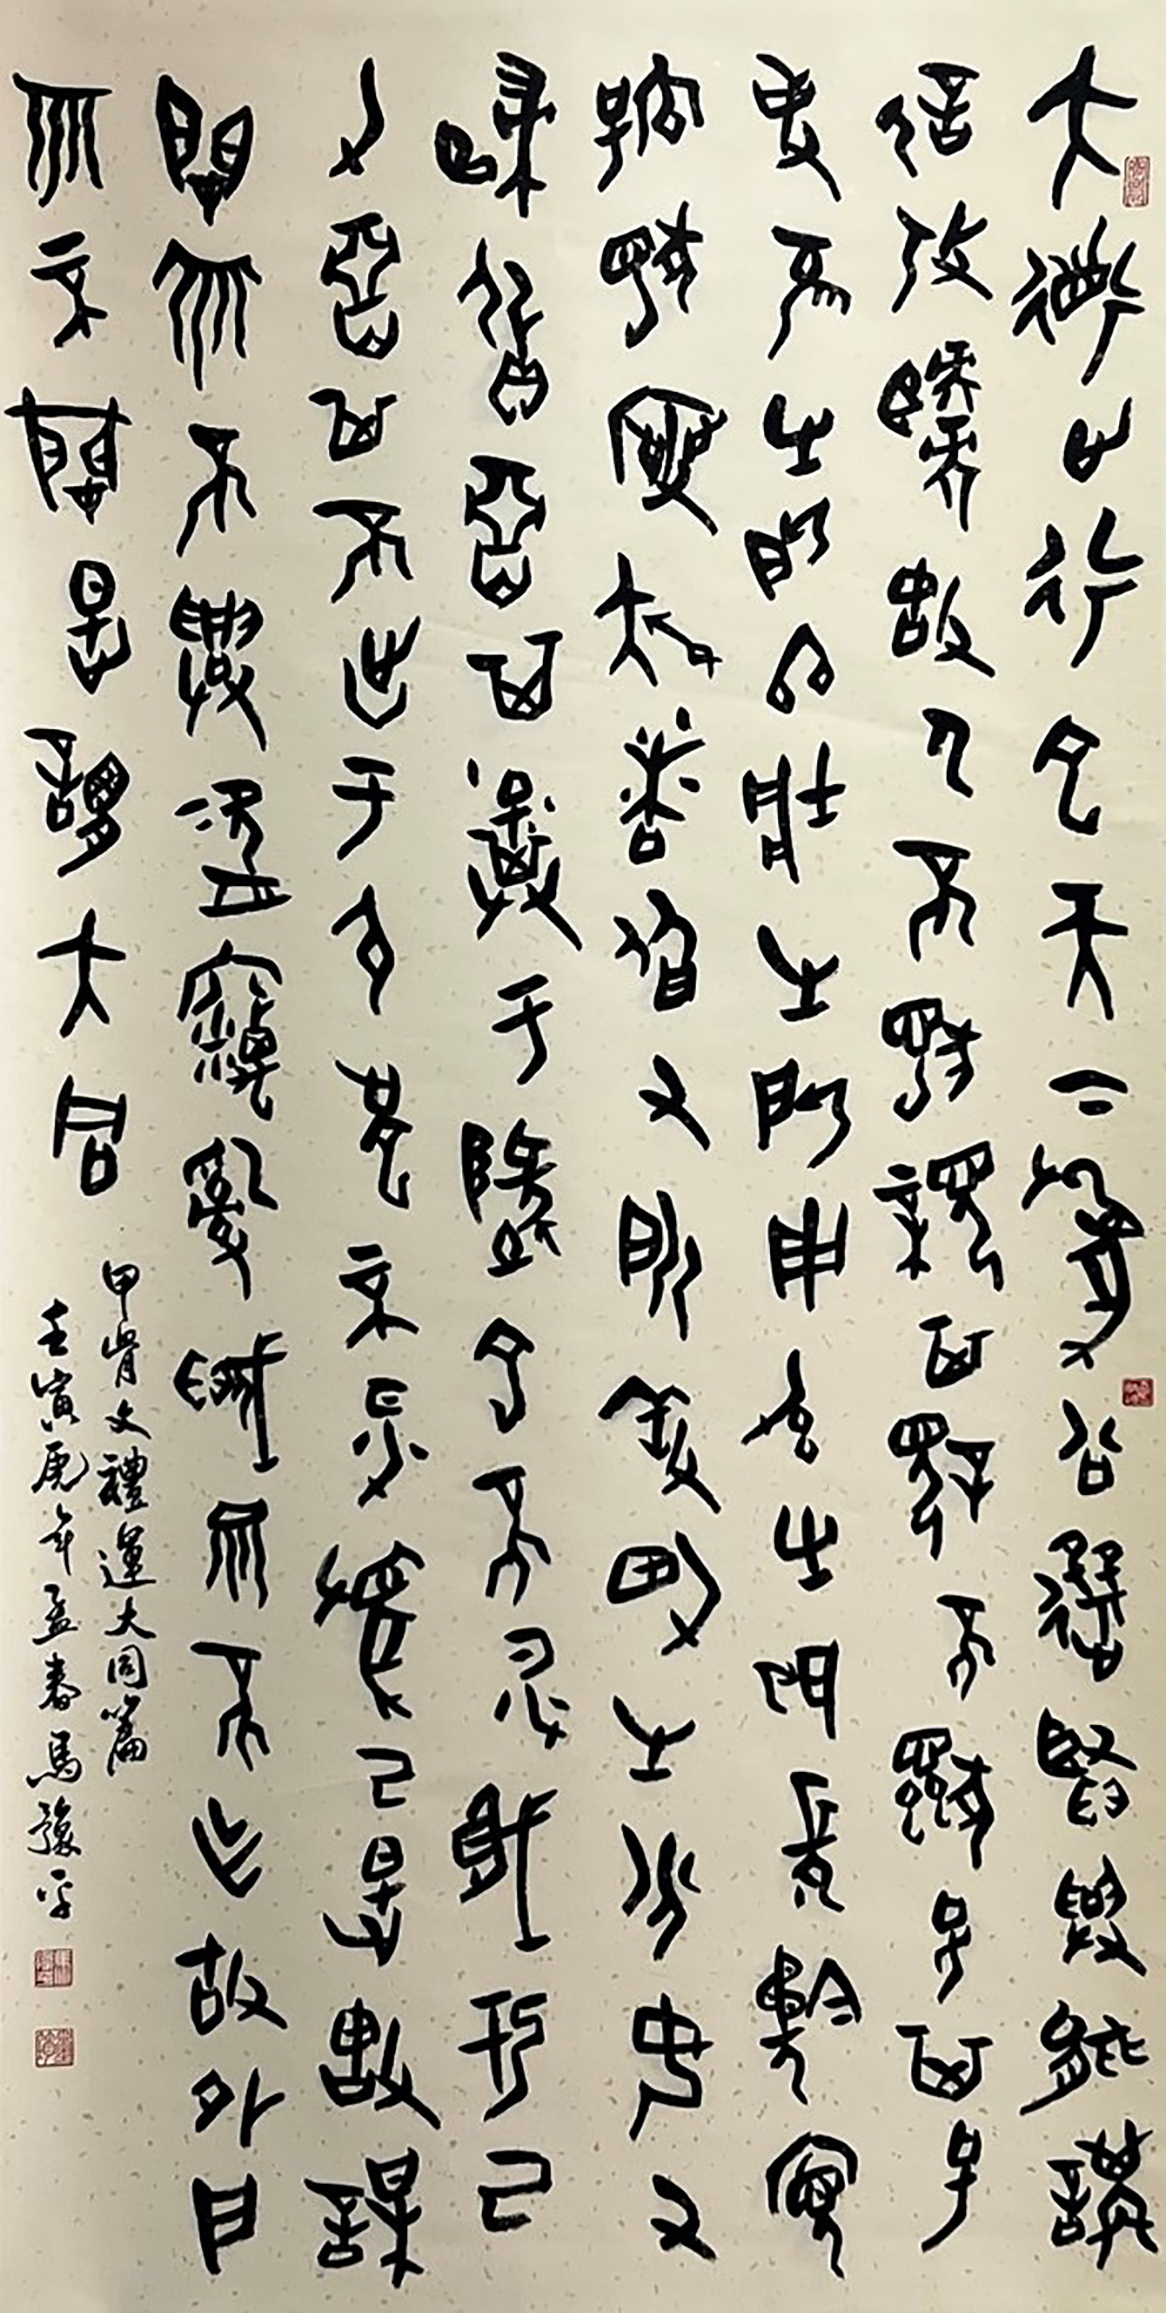 大道之行也天下為公選賢與能講
信修睦故人不獨親其親不獨子其子
使老有所終壯有所用幼有所長矜寡
孤獨廢疾者皆有所養男有分女有
歸貨惡其棄于地也不必藏於己
力惡其不出于身也不必為己是故謀
閉而不興盜竊亂賊而不作故外戶
而不閉是謂大同
甲骨文禮運大同篇
壬寅虎年孟春馬豫平